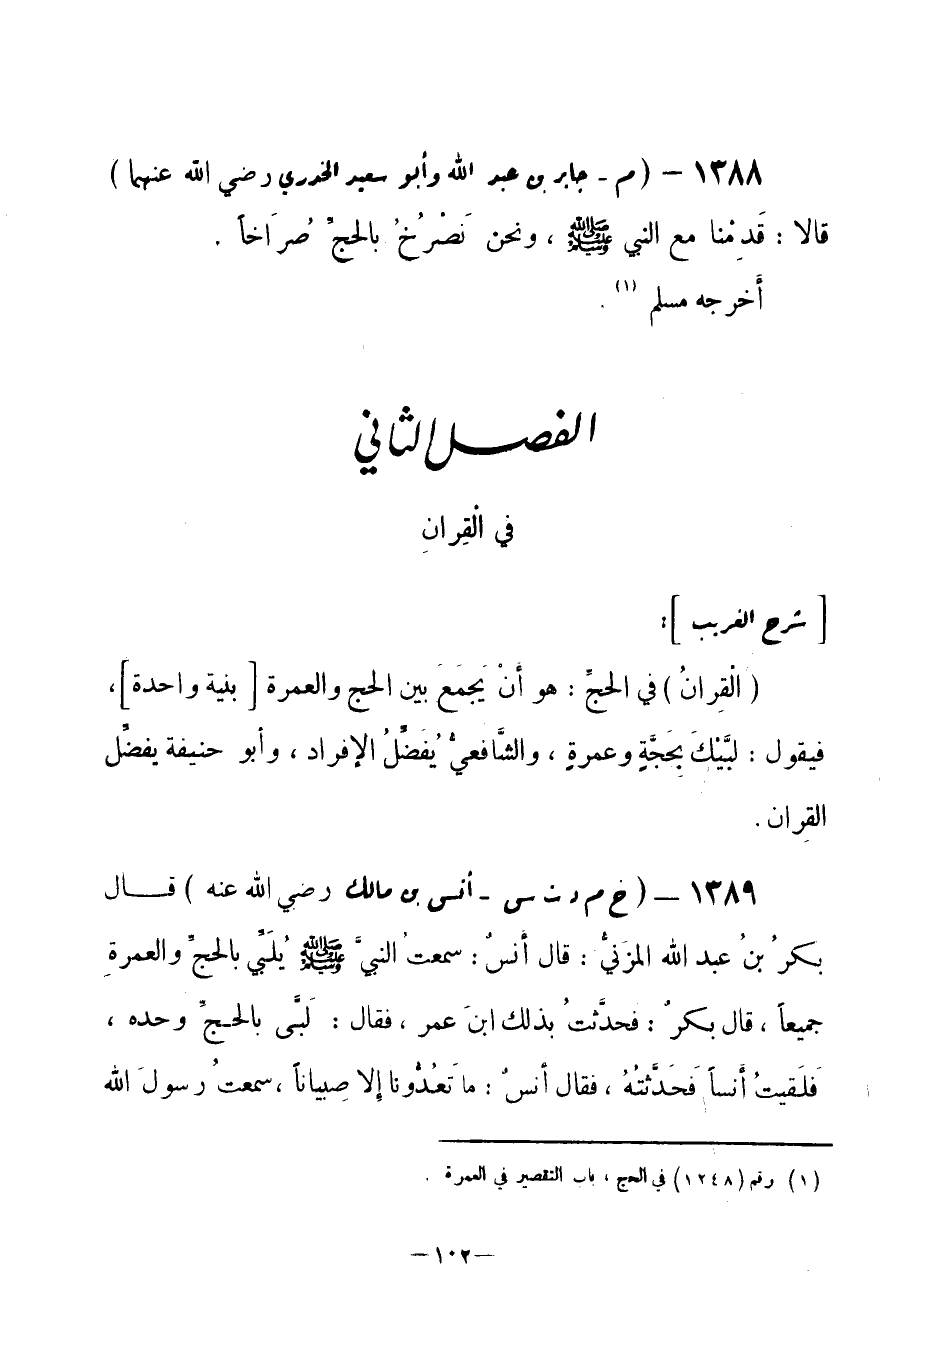 ١٣٨٨ – (م - جابر بن عبد الله وأبو سعيد الخدري رضي الله عنهما)
قالا : قَدِمْنا مع النبي ﷺ ، ونحن نَصْرُخُ بالحجِّ صُرَاخاً .
أَخرجه مسلم (١) .
الفصل الثاني
في الْقِرانِ
[ شرح الغريب ]:
( الْقِرانُ ) في الحجِّ : هو أَنْ يَجمَعَ بين الحج والعمرة [ بنية واحدة ]،
فيقول : لبَّيْكَ بحَجَّةٍ وعمرةٍ ، والشَّافعيُّ يُفَضِّلُ الإفراد ، وأبو حنيفة يفضِّل
القِران .
١٣٨٩ – (خ م د ت س - أنس بن مالك رضي الله عنه ) قــال
بكرُ بنُ عبد الله المزَنيُّ : قال أَنسٌ : سمعتُ النبيَّ ﷺ يُلَبِّي بالحجِّ والعمرةِ
جميعاً ، قال بكرٌ : فحدَّثتُ بذلك ابنَ عمر ، فقال : لَبَّى بالحـجِّ وحده ،
فَلَقيتُ أَنساً فَحَدَّثتُهُ ، فقال أنسٌ : ما تَعُدُّونا إلا صِبياناً ، سمعتُ رسولَ الله
(١) رقم (١٢٤٨) في الحج ، باب التقصير في العمرة .
–١٠٢–